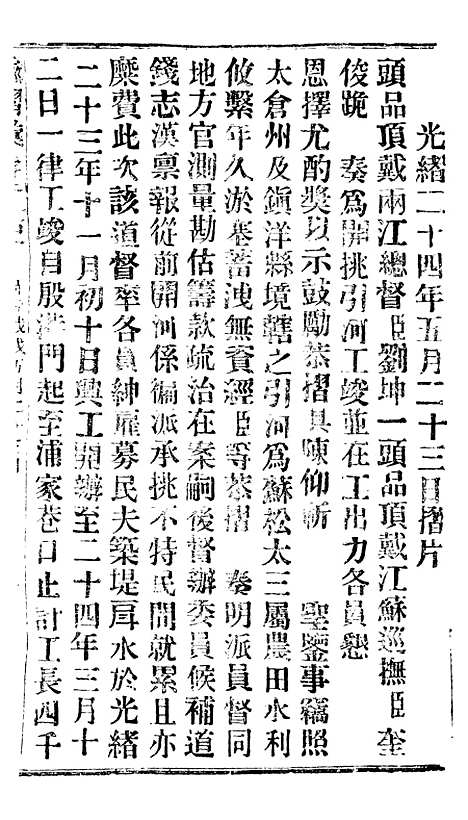 光緒二十四年五月二十三日摺片
頭品頂戴兩江總督臣劉坤一頭品頂戴江蘇巡撫臣奎
俊跪 奏爲開挑引河工竣並在工出力各員懇
恩擇尤酌獎以示鼓勵恭摺具陳仰祈 聖鑒事竊照
太倉州及鎭洋縣境轄之引河爲蘇松太三屬農田水利
攸繫年久淤塞蓄洩無資經臣等恭摺 奏明派員督同
地方官測量勘估籌款疏治在案嗣後督辦委員候補道
錢志漢禀報從前開河係徧派承挑不特民間就累且亦
糜費此次該道督率各員紳雇募民夫築堤戽水於光緒
二十三年十一月初十日興工開辦至二十四年三月十
二日一律工竣自殷港門起至浦家巷口止計工長四千